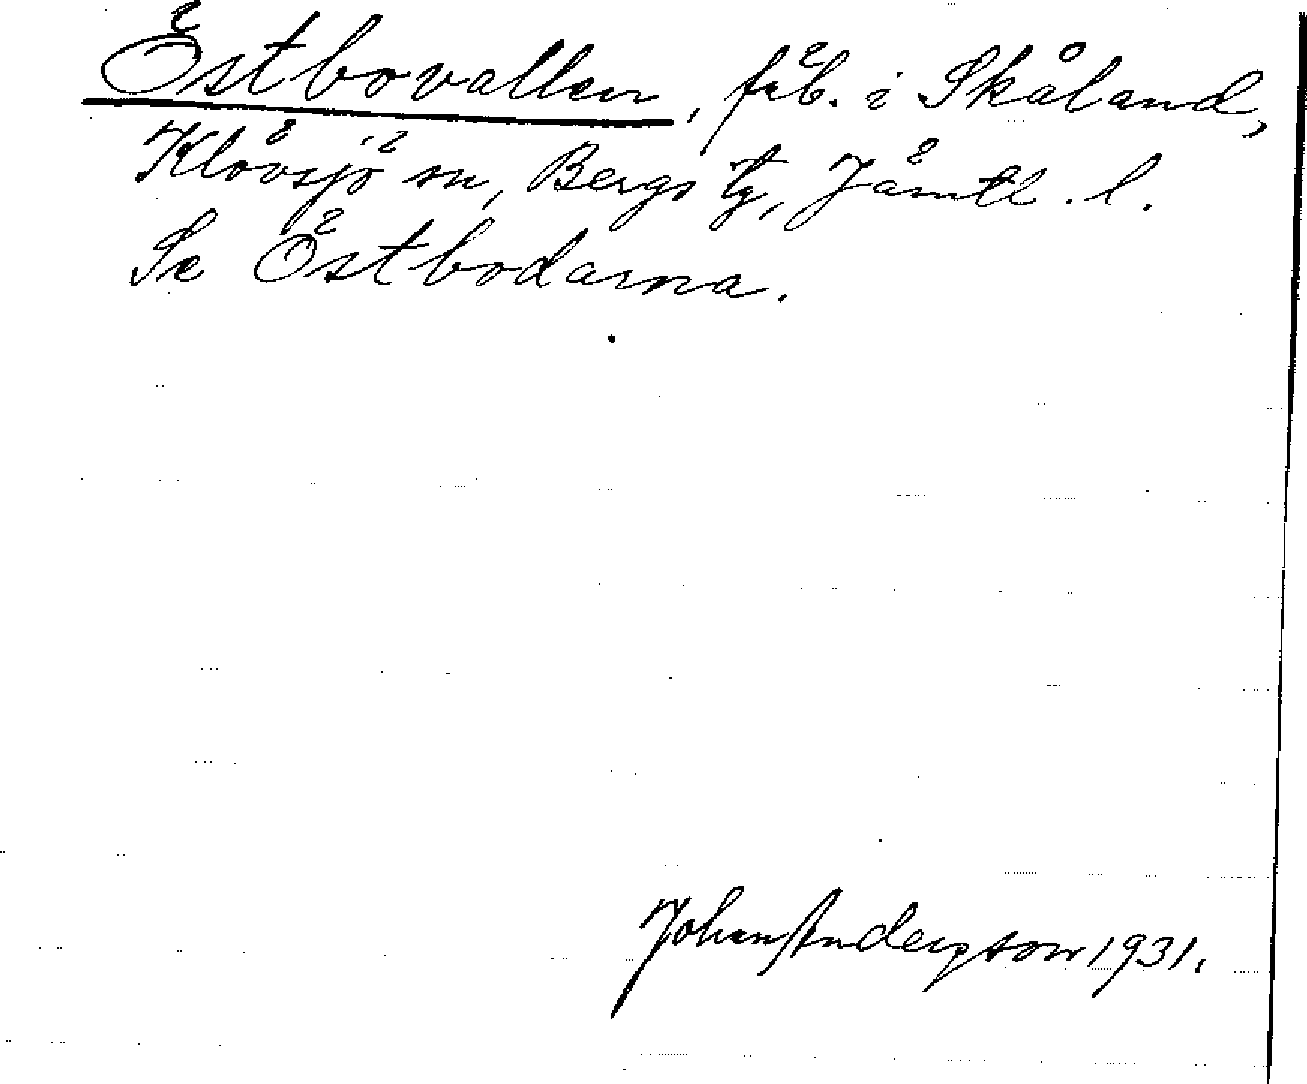 Östbovallen, fäb. i Skåland,
Klövsjö sn, Bergs tg, Jämtl. l.
Se Östbodarna.
Johan Andersson 1931.